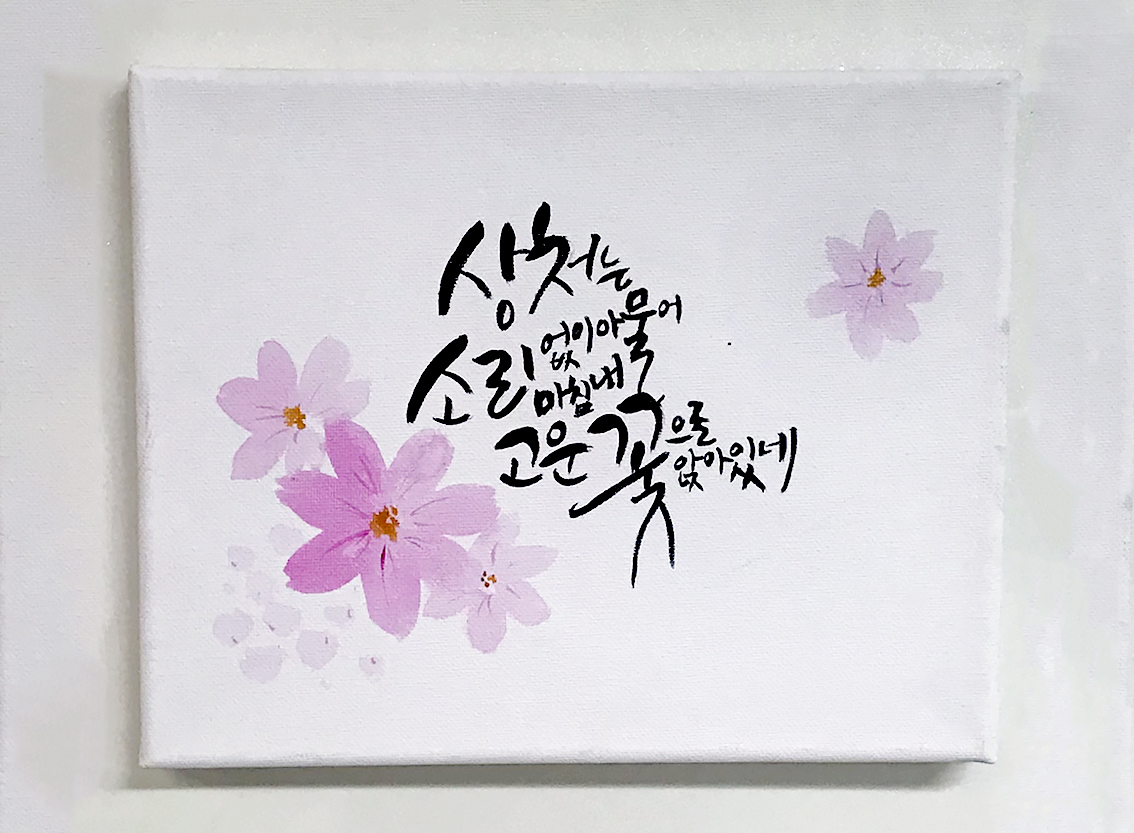 상처는
소리 없이 아물어
마침내
고운 꽃으로
앉아있네